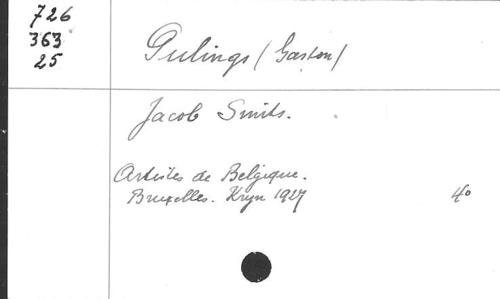 726
363
25
Pulings (Gaston)
Jacob Smits.
Artistes de Belgique.
Bruxelles. Kryn 1927 4°